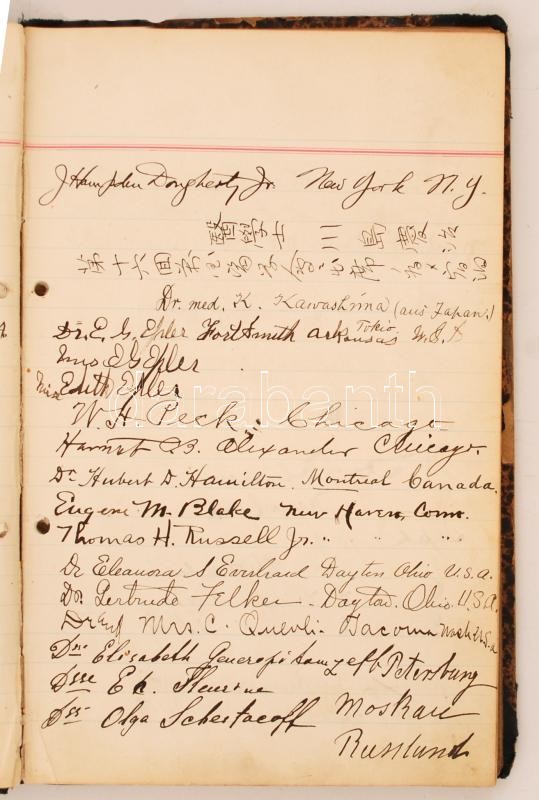 J Hampden Dougherty Jr. New York N.Y.
醫學士 川島慶治
第十六回
Dr. med. K. Kawashima (aus Japan.)
Tokio
Dr. E. G. Epler Fort Smith Arkansas U.S.A
Mrs E G Epler
Miss Edith Epler
W. H. Peck. Chicago
Harriet B. Alexander Chicago.
Dr. Hubert D. Hamilton, Montreal Canada.
Eugene M. Blake New Haven, Conn.
Thomas H. Russell Jr. " " "
Dr Eleanora S Everhard Dayton Ohio U.S.A.
Dr. Gertrude Felker - Dayton. Ohio. U.S.A.
Dr und Mrs. C. Quevli. Tacoma Wash U.S.A
Dr Elisabeth Petersburg
Olga Moskau
Russland
darabanth